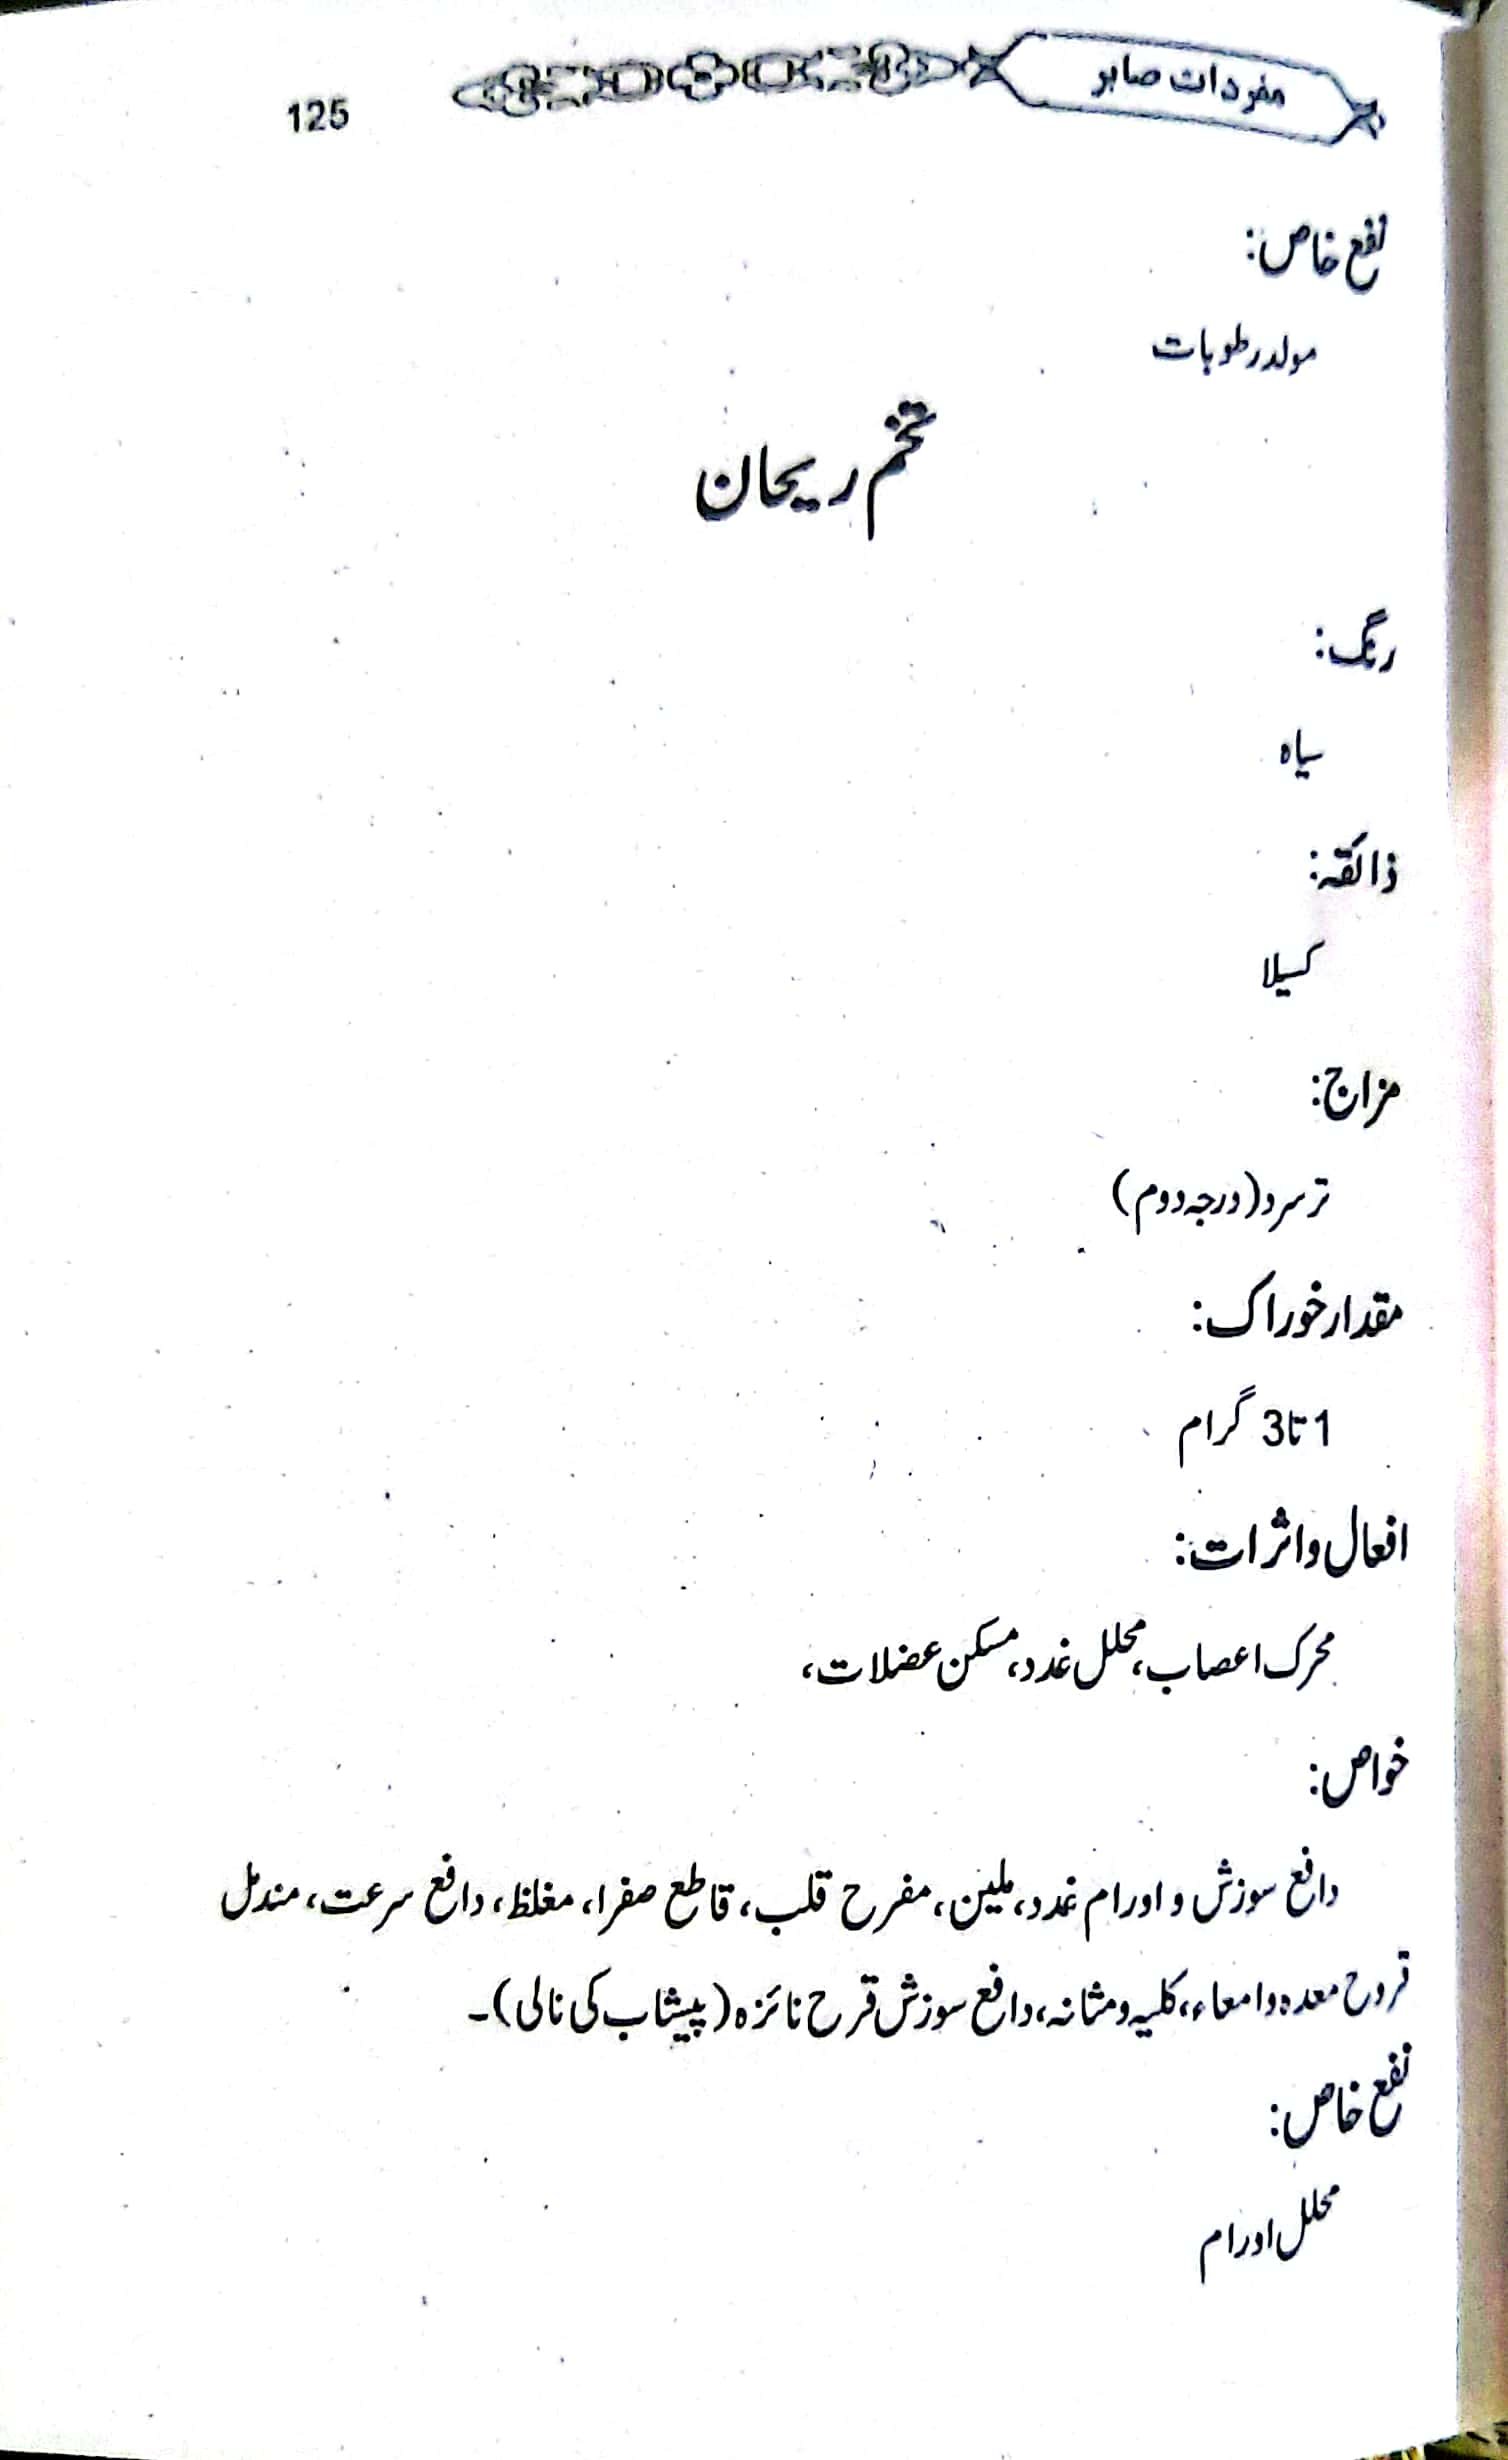 مفردات صابر
125
نفع خاص:
مولد رطوبات
تخم ریحان
رنگ:
سیاہ
ذائقہ:
کسیلا
مزاج:
تر سرد (درجہ دوم)
مقدار خوراک:
1 تا 3 گرام
افعال و اثرات:
محرک اعصاب، محلل غدد، مسکن عضلات،
خواص:
دافع سوزش و اورام غدد، ملین، مفرح قلب، قاطع صفرا، مغلظ، دافع سرعت، مندمل
قروح معدہ و امعاء، کلیہ و مثانہ، دافع سوزش قرح نائزہ (پیشاب کی نالی)۔
نفع خاص:
محلل اورام